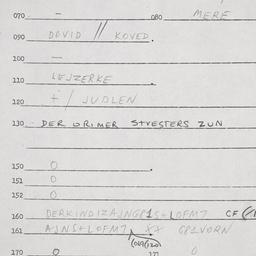 070. – 080 MERE
090 DOVID // KOVED.
100 —
110 LEJZERKE
120 + / JUDLEN
130. DER ORIMER SHVESTERS ZUN
150 0
151 0
152 0
160 DERKINDIZAJNGP1S+LOFM7 CF
161 AJNS+LOFM7 XX GP1VORN
170 0 171 0